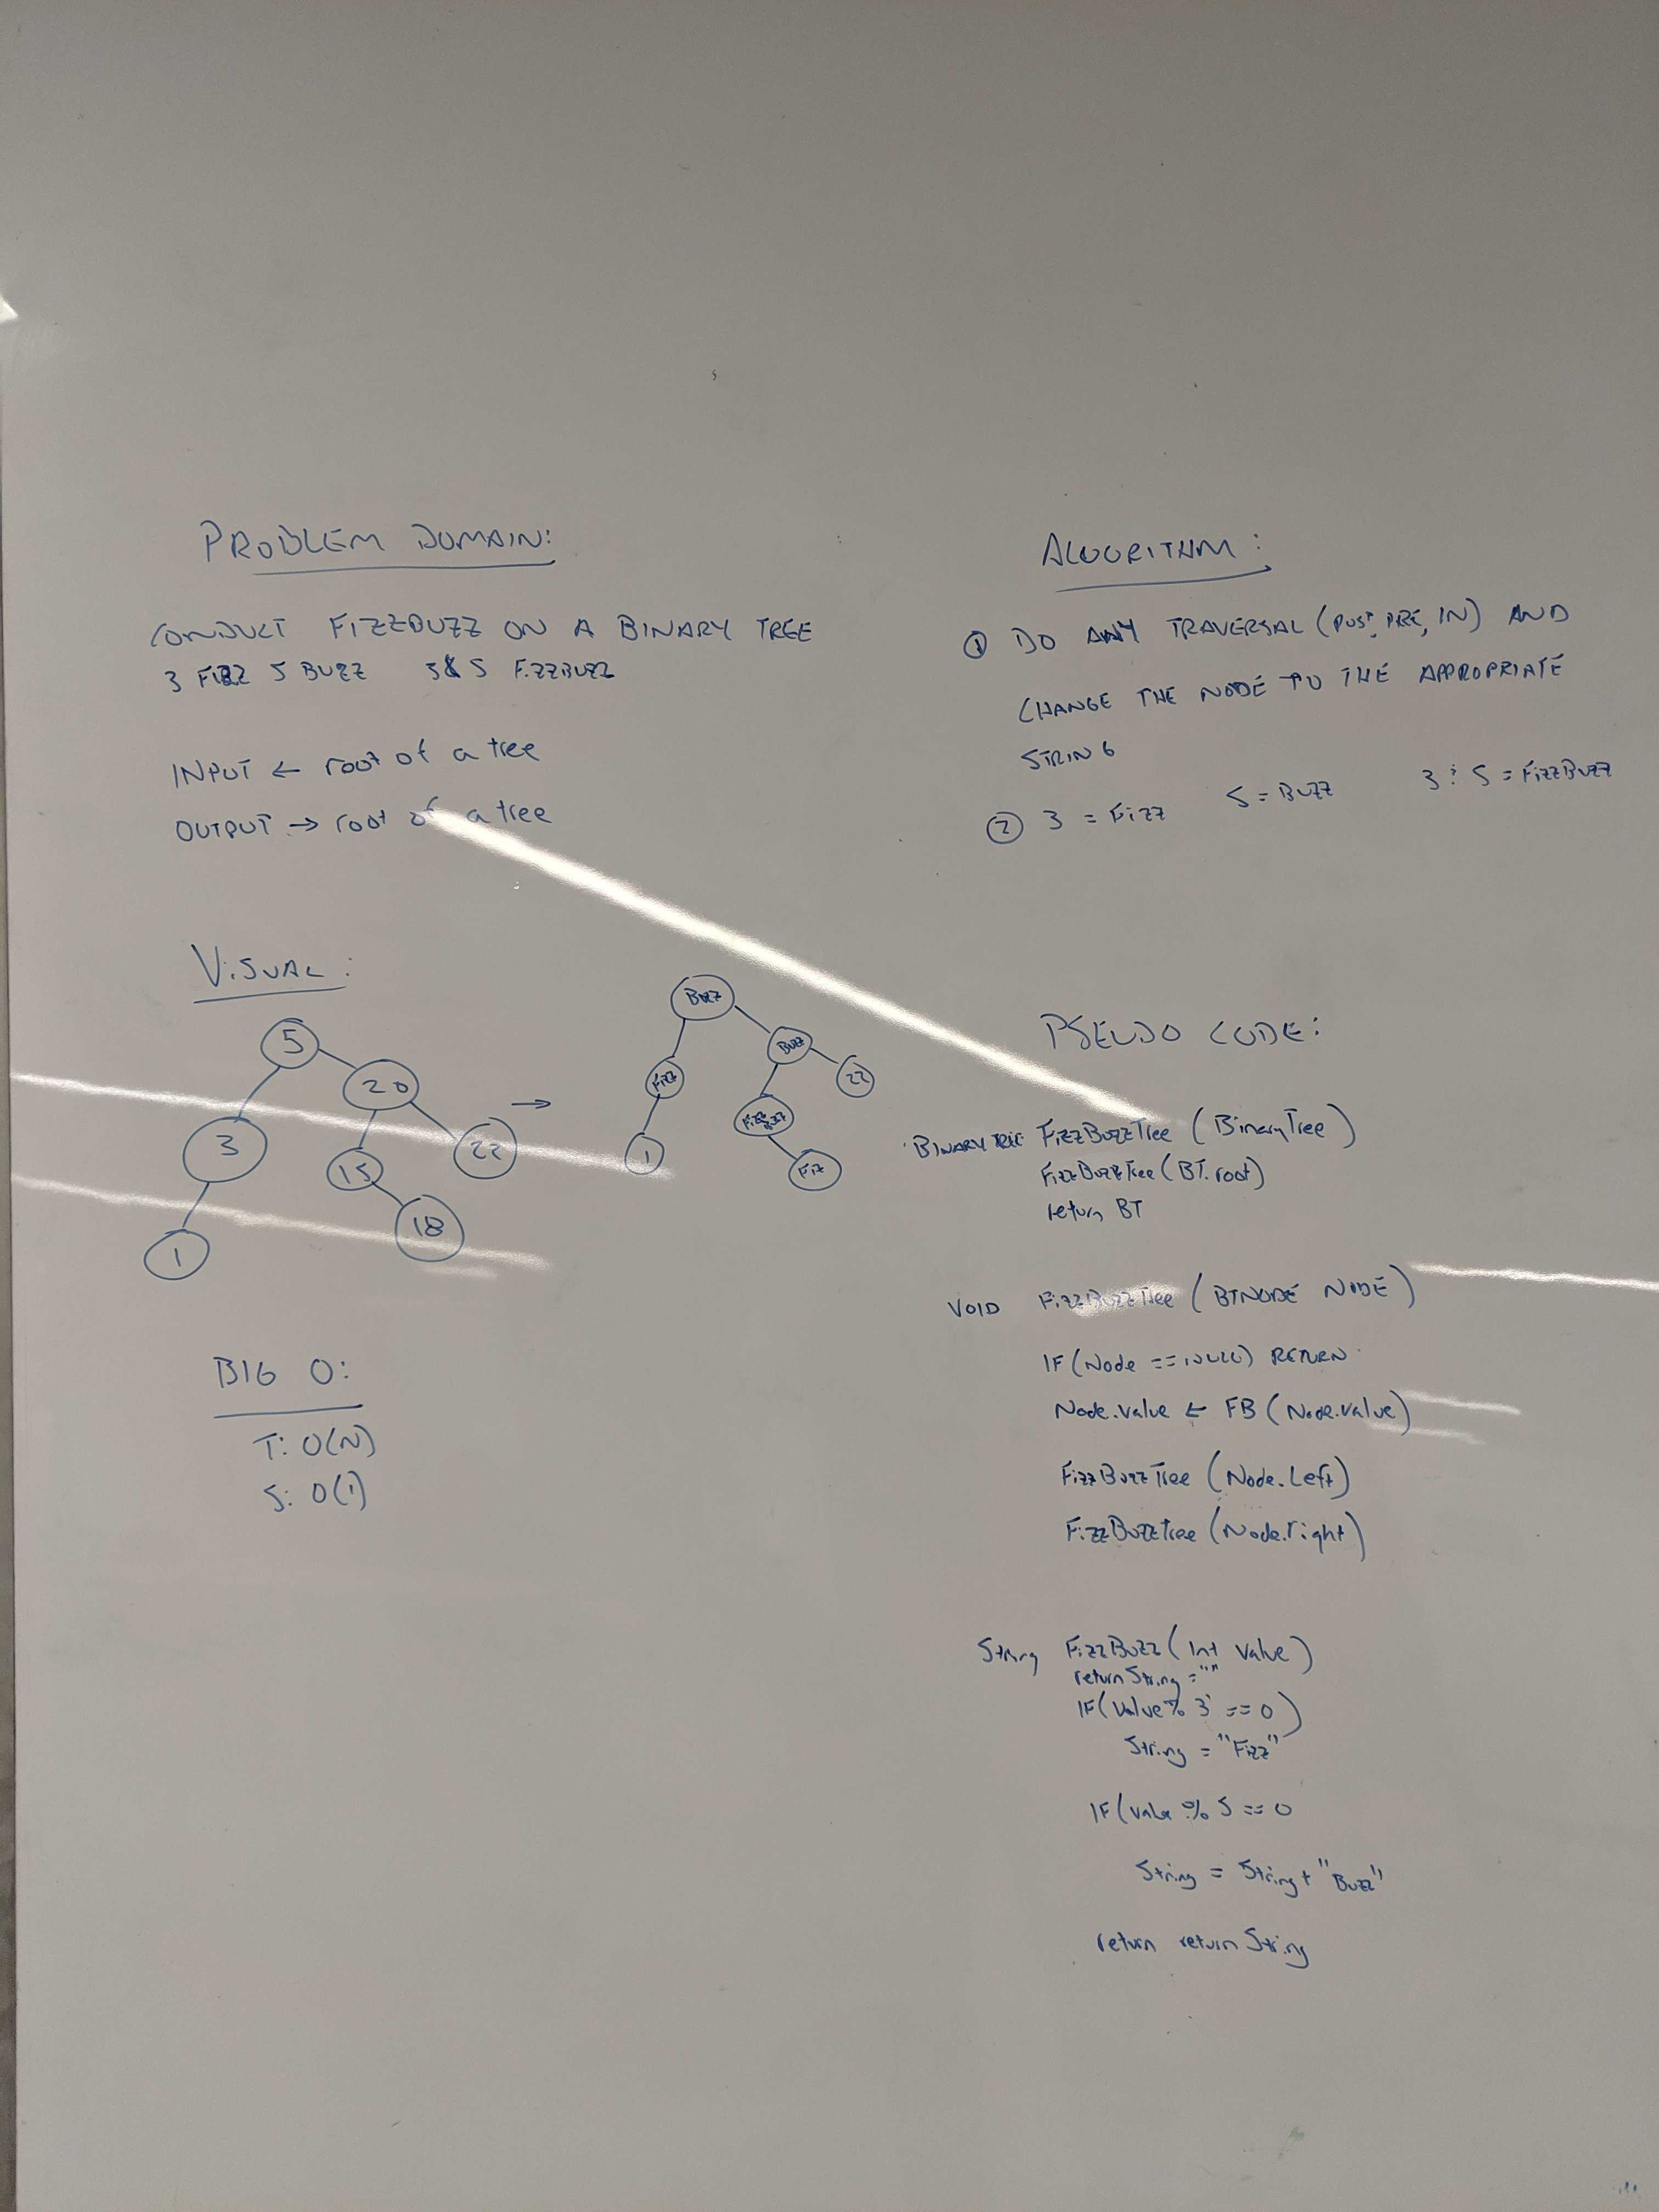 PROBLEM DOMAIN:
CONDUCT FIZZBUZZ ON A BINARY TREE
3 FIZZ 5 BUZZ 3&5 FIZZBUZZ
INPUT ← root of a tree
OUTPUT → root of a tree
VISUAL:
5
20
3
15
22
18
1
→
Buzz
Buzz
Fizz
22
FizzBuzz
1
Fiz
BIG O:
T: O(N)
S: O(1)
ALGORITHM:
① DO ANY TRAVERSAL (POST, PRE, IN) AND
CHANGE THE NODE TO THE APPROPRIATE
STRING
② 3 = Fizz 5 = BUZZ 3 & 5 = FizzBuzz
PSEUDO CODE:
BINARY TREE FizzBuzzTree (BinaryTree)
FizzBuzzTree (BT.root)
return BT
VOID FizzBuzzTree (BTNODE NODE)
IF (Node == NULL) RETURN
Node.value ← FB (Node.value)
FizzBuzzTree (Node.Left)
FizzBuzzTree (Node.right)
String FizzBuzz (Int value)
returnString = ""
IF (value % 3 == 0)
String = "Fizz"
IF (value % 5 == 0
String = String + "Buzz"
return returnString